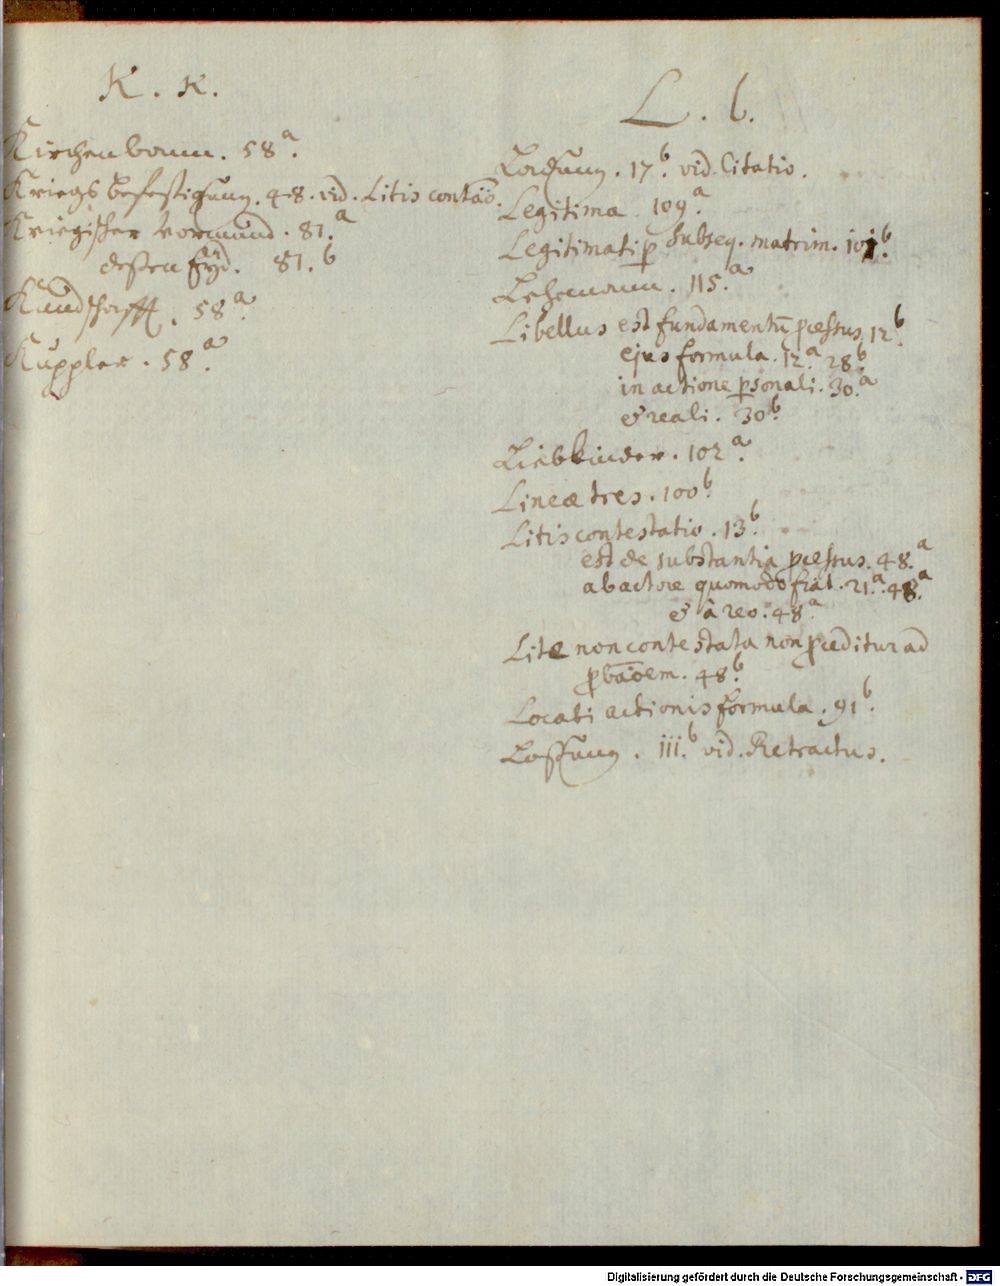 K. K.
Kirchenbann. 58.a
Kriegs befestigung. 48. vid. Litis contāō.
Kriegischer Vormund. 81.a
dessen Eyd. 81.b
Kundschafft. 58.a
Kuppler. 58.a
L. l.
Ladung. 17.b vid. Citatio.
Legitima. 109.a
Legitimati p subseq. matrim. 101.b
Lehemann. 115.a
Libellus est fundamentū pcessus 12.b
ejus formula. 12.a 28.b
in actione psonali. 30.a
& reali. 30.b
Liebkinder. 102.a
Lineæ tres. 100.b
Litis contestatio. 13.b
est de substantia pcessus. 48.a
ab actore quomodo fiat. 21.a 48.a
& â reo. 48.a
Lite non contestata non pceditur ad
pbāoem. 48.b
Locati actionis formula. 91.b
Lossung. 111.b vid. Retractus.
Digitalisierung gefördert durch die Deutsche Forschungsgemeinschaft - DFG